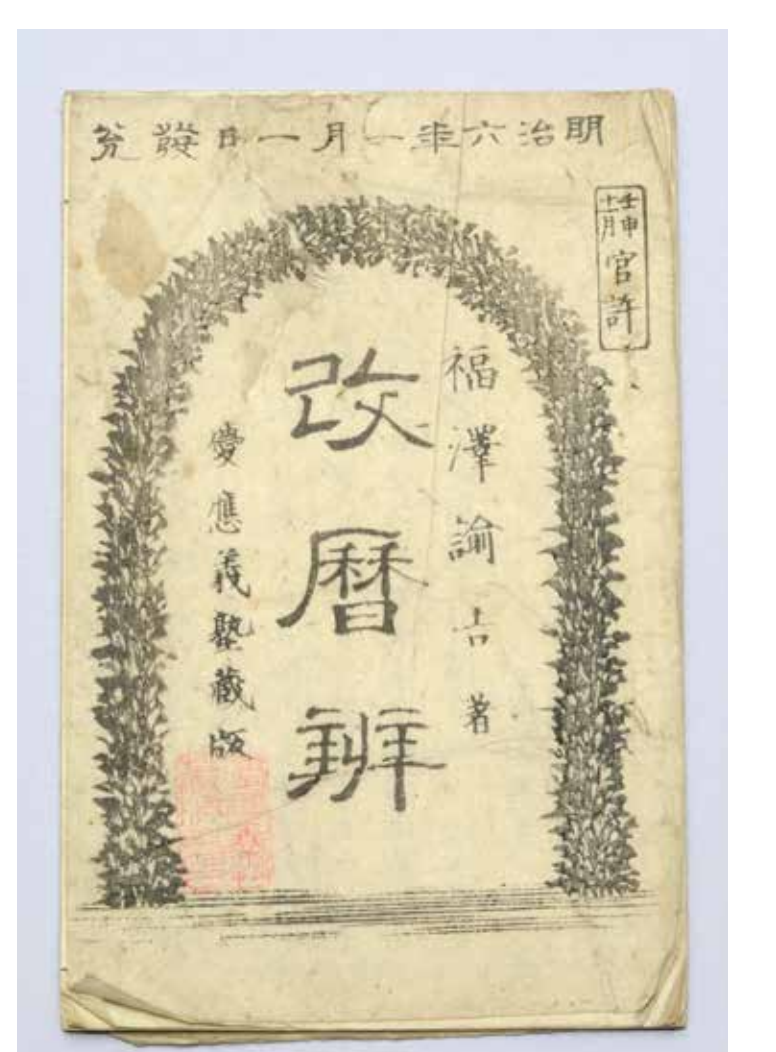 明治六年一月一日發兌
壬申
十二月
官許
福澤諭吉著
改暦辨
慶應義塾藏版